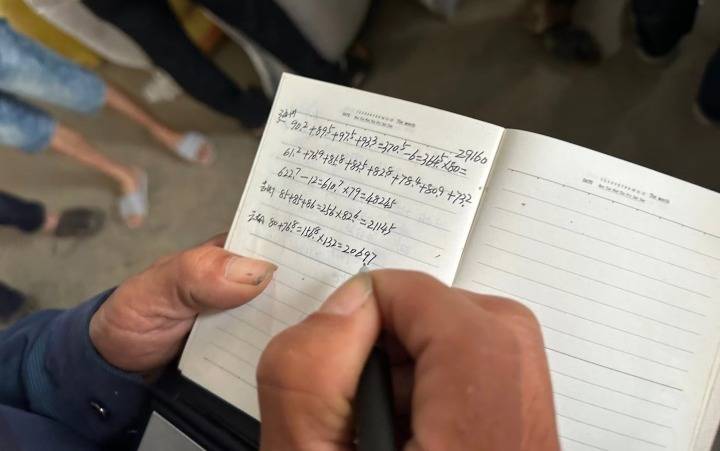 90.2+89.5+97.5+93.3=370.5-6=364.5×80=
29160
61.2+76.9+81.8+83.5+82.8+78.4+80.9+73.2
622.7-12=610.7×79=48245
85+85+86=256×82.6=21145
80+76.8=156.8×132=20697